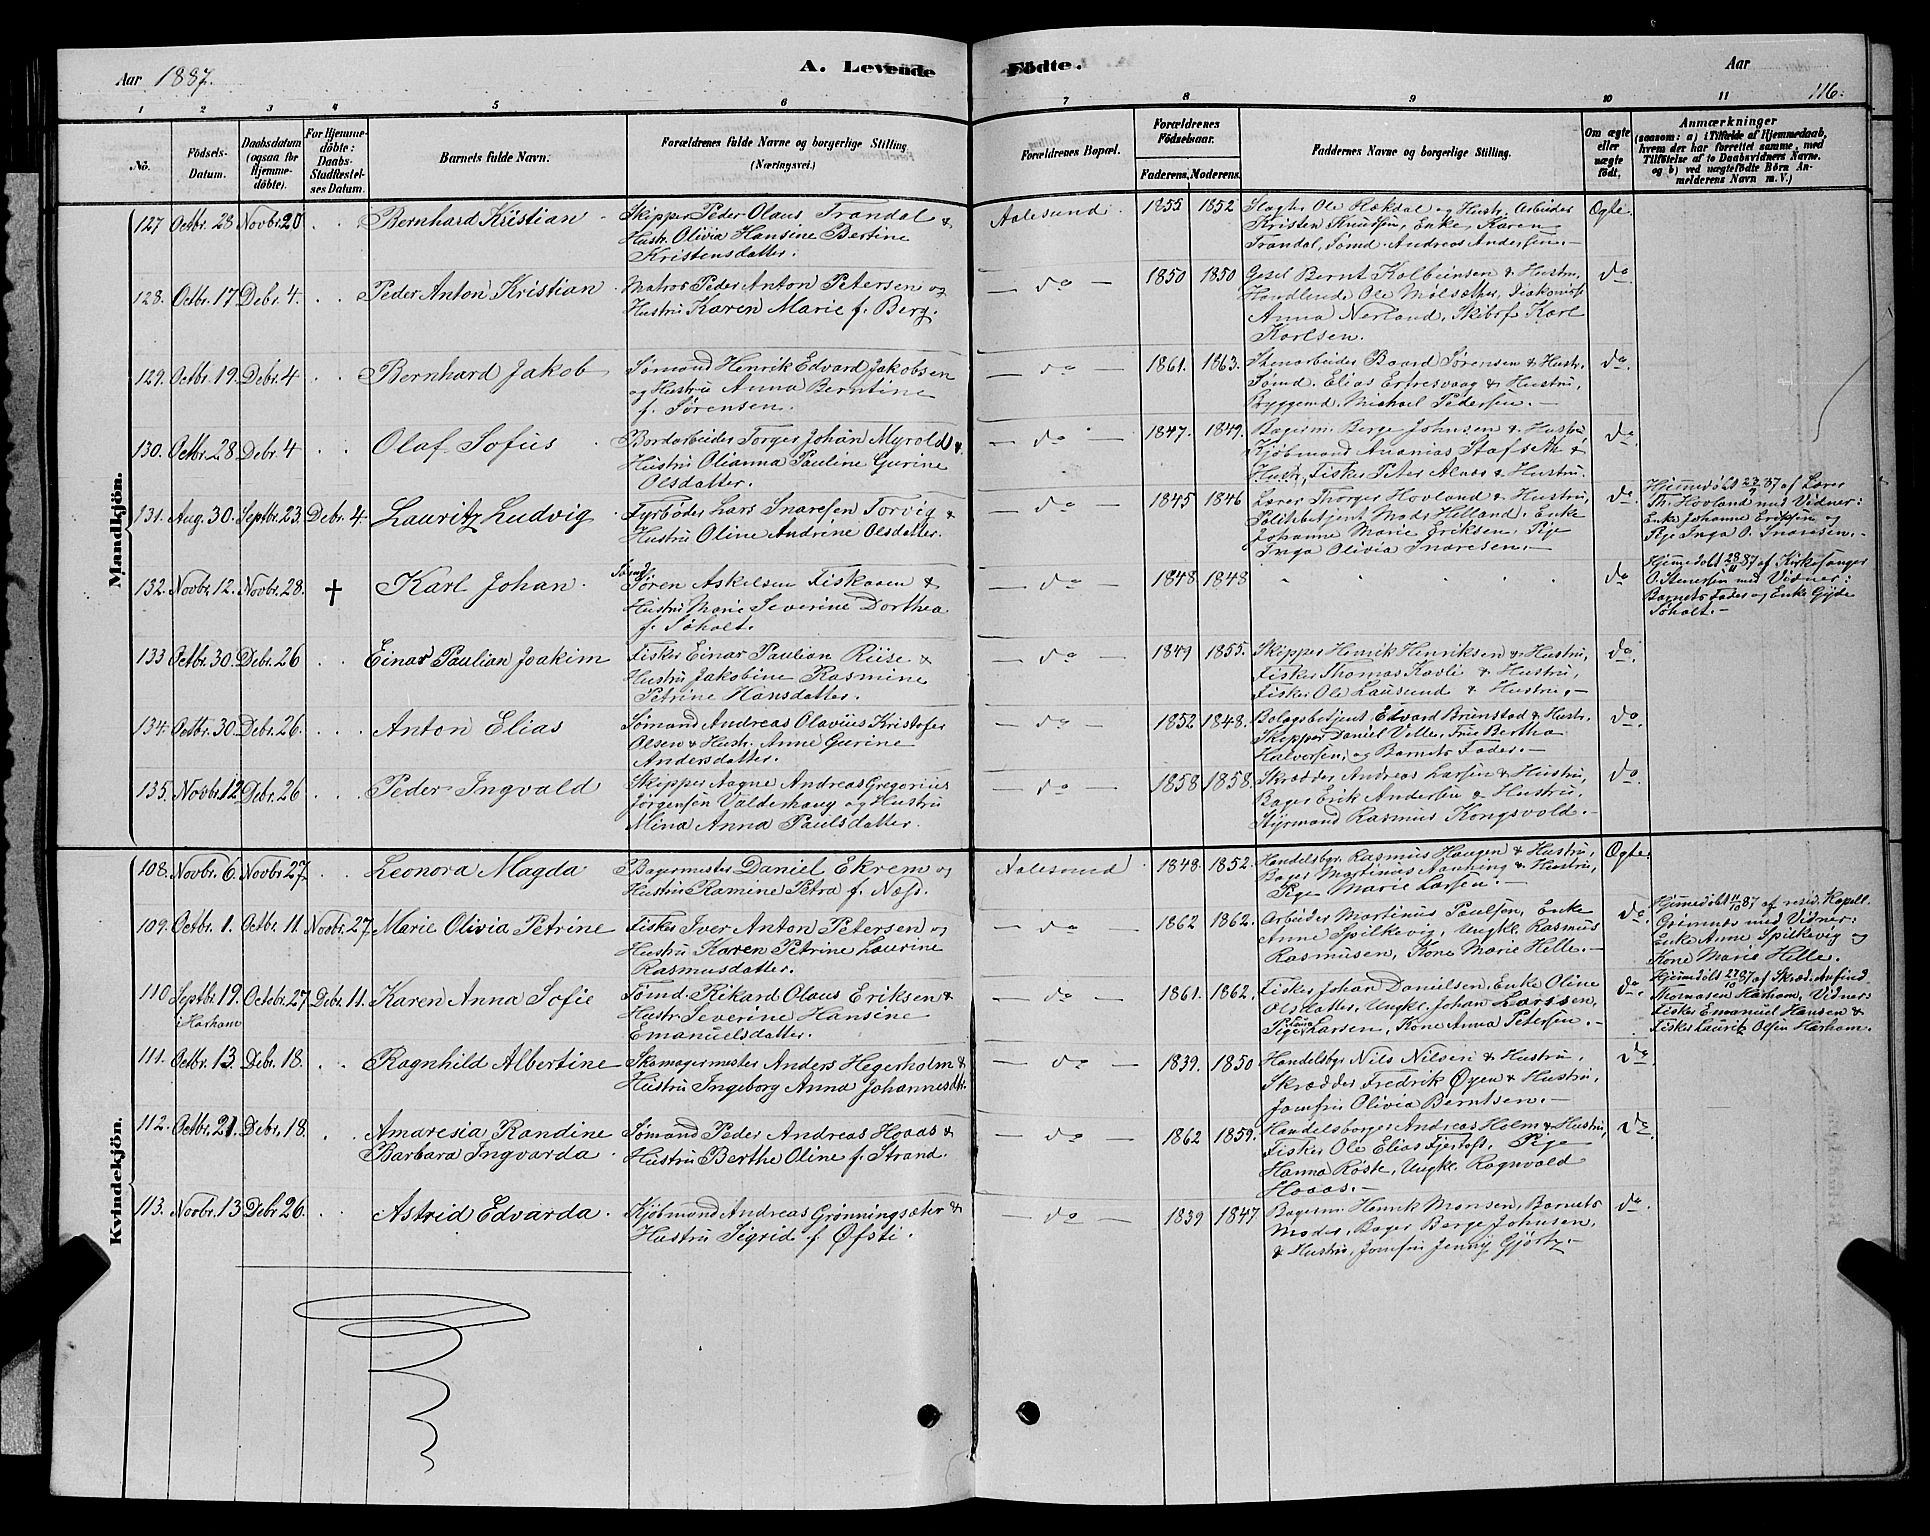 Aar 1887.
A. Levende Födte.
Aar
116.
1 2 3 4 5 6 7 8 9 10 11
No.
Födsels-Datum.
Daabsdatum (ogsaa for Hjemmedöbte).
For Hjemmedöbte: Daabs-Stadfæstelses Datum.
Barnets fulde Navn.
Forældrenes fulde Navne og borgerlige Stilling. (Næringsvei.)
Forældrenes Bopæl.
Forældrenes Födselsaar.
Faderens. Moderens.
Faddernes Navne og borgerlige Stilling.
Om ægte eller uægte födt.
Anmærkninger
(saasom: a) i Tilfælde af Hjemmedaab, hvem der har forrettet samme, med Tilföielse af to Daabsvidners Navne, og b) ved uægtefödte Börn Anmelderens Navn m. V.)
Mandkjön.
127 Octbr. 23 Novbr. 20 Bernhard Kristian Skipper Peder Olaus Trandal & Aalesund. 1855 1852 Slagter Ole Rækdal og Hustr. Arbeider Ægte.
Hustr. Olivia Hansine Bertine Kristen Knudsen, Enke Karen
Kristensdatter. Trandal, Sømd. Andreas Andersen.
128. Octbr. 17 Debr. 4. Peder Anton Kristian Matros Peder Anton Petersen og do 1850 1850 Gesel Bernt Kolbeinsen & Hustru, do
Hustru Karen Marie f. Berg. Handlende Ole Molsæther, Diakonisse
Anna Nerland, Skibsf. Karl
Karlsen.
129. Octbr. 19. Debr. 4 Bernhard Jakob Sømand Henrik Edvard Jakobsen do 1861. 1863. Stenarbeider Baard Sørensen & Hustr. do.
og Hustru Anna Berntine Sømd. Elias Erfresvaag & Hustru,
f. Sørensen. Byggemd. Michael Pedersen.
130. Octbr. 28 Debr. 4 Olaf Sofus Bordarbeider Torger Johan Myrold & do 1847. 1849. Bagerm. Berge Johnsen & Hustru do.
Hustru Olianna Pauline Gurine Kjøbmand Ananias Stafseth &
Olsdatter. Hustr, Fisker Peter Alnæs & Hustru.
131. Aug. 30. Septbr. 23. Debr. 4. Lauritz Ludvig Fyrbøder Lars Snaresen Torvig & do 1845 1846 Lærer Thorger Hovland & Hustru, do. Hjemmedøbt 23/9 87 af Lærer
Hustru Oline Andrine Olsdatter. Politibetjent Mads Helland. Enke Th. Hovland med Vidner:
Johanne Marie Eriksen, Pige Enke Johanne Eriksen og
Inga Olivia Snaresen. Pige Inga O. Snaresen.
132. Novbr. 12. Novbr. 28. † Karl Johan. Sømd. Søren Askelsen Fiskaaen & do 1848 1848 do Hjemedøbt 28/11 87 af Kirkesanger
Hustru Marie Severine Dorthea O. Stenersen med Vidner:
f. Søholt. Barnets Fader og Enke Gjde Søholt.
133 Octbr. 30. Debr. 26 Einar Paulian Joakim Fisker Einar Paulian Riise & do 1849 1855. Skipper Henrik Henriksen & Hustru, do.
Hustru Jakobine Rasmine Fisker Thomas Kavli & Hustru,
Petrine Hansdatter. Fisker Ole Lausund & Hustru,
134. Octbr. 30 Debr. 26. Anton Elias Sømand Andreas Olavius Kristofer do 1852 1848. Bologsbetjent Edvard Brunstad & Hustr. do.
Olsen & Hustr. Anne Gurine Skipper Daniel Ville, Frue Bertha
Andersdatter. Halvorsen, og Barnets Fader.
135. Novbr. 12. Debr. 26 Peder Ingvald Skipper Aagne Andreas Gregorius do 1858 1858. Skrædder Andreas Larsen & Hustru, do.
Jørgensen Valderhaug og Hustru Bager Erik Andersen & Hustru,
Mina Anna Paulsdatter. Styrmand Rasmus Kongsvold.
Kvindekjön.
108. Novbr. 6. Novbr. 27. Leonora Magda Bagermester Daniel Ekrem og Aalesund 1848. 1852. Handelsbgr. Rasmus Haugen & Hustru, Ægte.
Hustru Ramine Petra f. Næss. Bager Martinus Nauning & Hustru,
Pige Marie Larsen.
109. Octbr. 1. Octbr. 11. Novbr. 27. Marie Olivia Petrine Fisker Iver Anton Petersen og do 1862 1862. Arbeider Martinus Paulsen, Enke do. Hjemedøbt 11/10 87 af resid. Kapell.
Hustru Karen Petrine Laurine Anne Spilkevig, Ungkl. Rasmus Grønnes med Vidner:
Rasmusdatter. Rasmusen, Kone Marie Helle. Enke Anne Spilkevig og
Kone Marie Helle.
110 Septbr. 19. Octbr. 27. Debr. 11. Karen Anna Sofie Sømd. Rikard Olaus Eriksen & do 1861. 1862. Fisker Johan Danielsen, Enke Oline do. Hjemedøbt 27/10 87 af Skræd. Anfind
i Harham Hustr. Severine Hansine Olsdatter, Ungkl. Johan Larssen, Thomasen Harham, Vidner:
Emanuelsdatter. Pige Larsen, Kone Anna Petersen. Fisker Emanuel Hansen &
Fisker Lauritz Olsen Harham.
111. Octbr. 13. Debr. 18. Ragnhild Albertine Skomagermester Anders Hegerholm & do 1839. 1850 Handelsbgr Nils Nilsen & Hustru. do
Hustru Ingeborg Anna Johannesdtr. Skrædder Fredrik Øyen & Hustru,
Jomfru Olivia Berntsen.
112. Octbr. 21. Debr. 18. Amaresia Randine Sømand Peder Andreas Hoaas & do 1862 1859. Handelsborger Andreas Holm & Hustru, do.
Barbara Ingvarda. Hustru Berthe Oline f. Strand. Fisker Ole Elias Fjertoft, Pige
Hanna Røste, Ungkl. Ragnvald
Hoaas.
113. Novbr. 13 Debr. 26. Astrid Edvarda. Kjøbmand Andreas Grønningsæter & do 1839 1847 Bagerm. Henrik Monsen, Barnets do.
Hustru Sigrid f. Øfsti. Moder, Bager Berge Johnsen,
& Hustru, Jomfru Jenny Gjørtz.